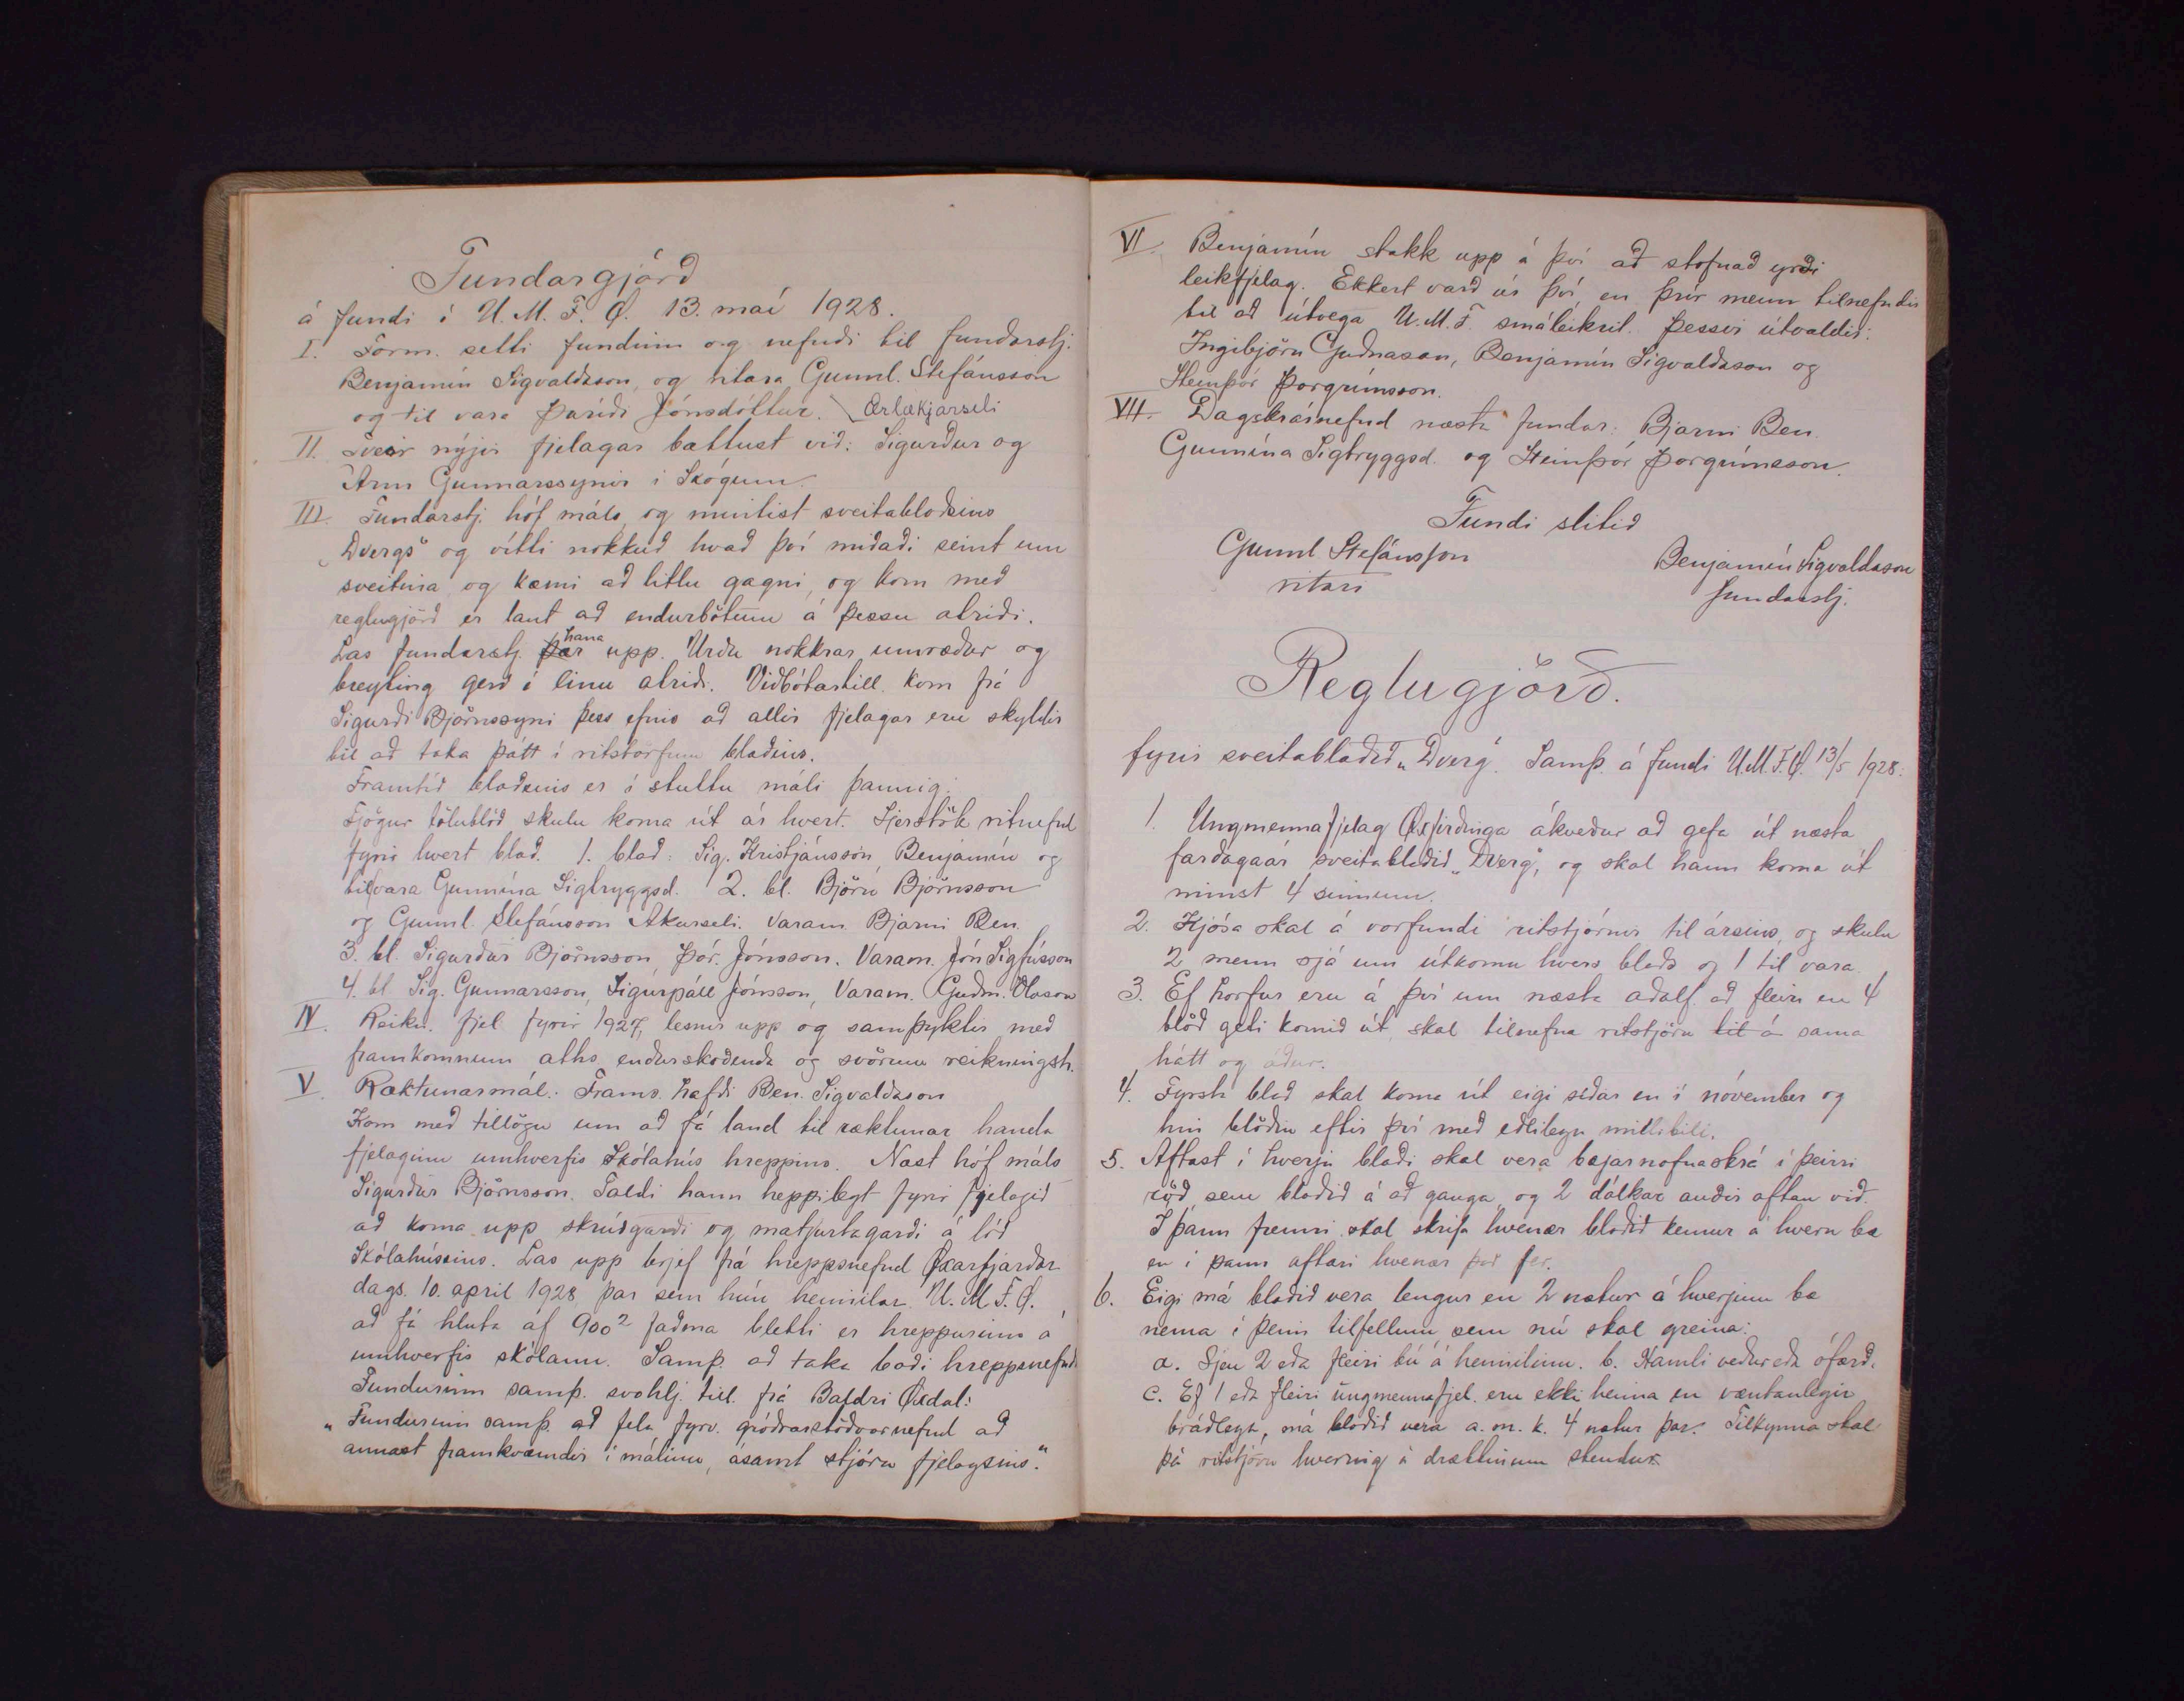 Fundargjörð
á fundi í U. M. F. Ö. 13. maí 1928.
I. Form. setti fundinn og nefndi til fundarstj.
Benjamín Sigvaldason, og ritara Gunnl. Stefánsson
og til vara Þuríði Jónsdóttur. Ærlækjarseli
II. Tveir nýjir fjelagar bættust við: Sigurður og
Árni Gunnarssynir í Skógum.
III. Fundarstj. hóf máls, og mintist sveitablaðsins
„Dvergs" og vítti nokkuð hvað því miðaði seint um
sveitina og kæmi að litlu gagni, og kom með
reglugjörð er laut að endurbótum á þessu atriði.
Las fundarstj. þær hana upp. Urðu nokkrar umræður og
breyting gerð í einu atriði. Viðbótartill. kom frá
Sigurði Björnssyni þess efnis að allir fjelagar eru skyldir
til að taka þátt í ritstörfum blaðsins.
Framtíð blaðsins er í stuttu máli þannig:
Fjögur tölublöð skulu koma út ár hvert. Sjerstök ritnefnd
fyrir hvert blað. 1. blað: Sig. Kristjánsson, Benjamín og
til vara Gunnína Sigtryggsd. 2. bl. Björn Björnsson
og Gunnl. Stefánsson Akurseli. Varam. Bjarni Ben.
3. bl. Sigurður Björnsson, Þór. Jónsson. Varam. Jón Sigfússon
4. bl Sig. Gunnarsson, Sigurpáll Jónsson, Varam. Guðm. Ólason
IV. Reikn. fjel. fyrir 1927, lesnir upp og samþyktir með
framkomnum aths. endurskoðenda og svörum reikningsh.
V. Ræktunarmál: Frams. hafði Ben. Sigvaldason
Kom með tillögu um að fá land til ræktunar handa
fjelaginu umhverfis Skólahús hreppins. Næst hóf máls
Sigurður Björnsson. Taldi hann heppilegt fyrir fjelagið
að koma upp skrúðgarði og matjurtagarði á lóð
Skólahússins. Las upp brjef frá hreppsnefnd Öxarfjarðar
dags. 10. april 1928 þar sem hún heimilar U. M. F. Ö.
að fá hluta af 900² faðma bletti er hreppurinn á
umhverfis skólann. Samþ. að taka boði hreppsnefnd
Fundurinn samþ. svohlj. till. frá Baldri Öxdal:
„Fundurinn samþ. að fela fyrv. gróðrarstöðvarnefnd að
annast framkvæmdir í málinu, ásamt stjórn fjelagsins."
VI. Benjamín stakk upp á því að stofnað yrði
leikfjelag. Ekkert varð úr því, en þrír menn tilnefndir
til að útvega U. M. F. smáleikrit. Þessir útvaldir:
Ingibjörn Guðnason, Benjamín Sigvaldason og
Steinþór Þorgrímsson.
VII. Dagskrárnefnd næsta fundar: Bjarni Ben.
Gunnína Sigtryggsd. og Steinþór Þorgrímsson.
Fundi slitið
Gunnl. Stefánsson
ritari
Benjamín Sigvaldason
fundarstj.
Reglugjörð.
fyrir sveitablaðið „Dverg". Samþ. á fundi U.M.F.Ö. 13/5 1928:
1. Ungmennafjelag Öxfirðinga ákveður að gefa út næsta
fardagaár sveitablaðið „Dverg", og skal hann koma út
minst 4 sinnum.
2. Kjósa skal á vorfundi ritstjórnir til ársins, og skulu
2 menn sjá um útkomu hvers blaðs og 1 til vara.
3. Ef horfur eru á því um næsta aðalf. að fleiri en 4
blöð geti komið út, skal tilnefna ritstjórn til á sama
hátt og áður.
4. Fyrsta blað skal koma út eigi síðar en í nóvember og
hin blöðin eftir því með eðlilegu millibili.
5. Aftast í hverju blaði skal vera bæjarnafnaskrá í þeirri
röð, sem blaðið á að ganga, og 2 dálkar auðir aftan við.
Í þann fremri skal skrifa hvenær blaðið kemur á hvern bæ
en í þann aftari hvenær það fer.
6. Eigi má blaðið vera lengur en 2 nætur á hverjum bæ
nema í þeim tilfellum, sem nú skal greina:
a. Sjeu 2 eða fleiri bú á heimilinu. b. Hamli veður eða ófærð.
c. Ef 1 eða fleiri ungmennafjel. eru ekki heima en væntanlegir
bráðlega, má blaðið vera a. m. k. 4 nætur þar. Tilkynna skal
þá ritstjórn hvernig á drættinum stendur.